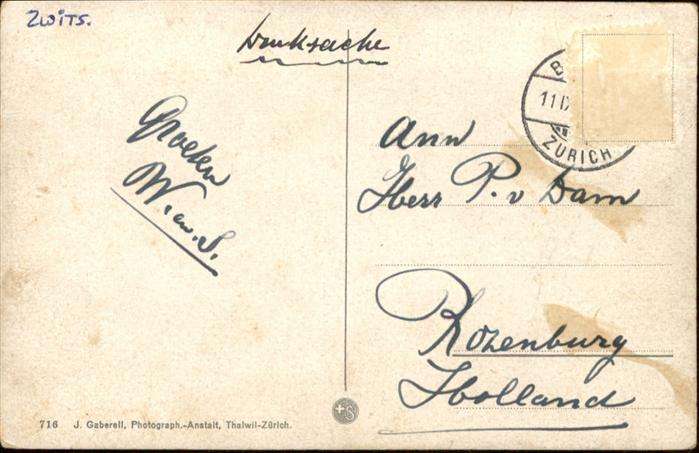 ZWITS.
Drucksache
Groeten
W. v. S.
Ann
Herr P. v Dam
Rozenburg
Holland
11 IX
ZÜRICH
716 J. Gaberell, Photograph.-Anstalt, Thalwil-Zürich.